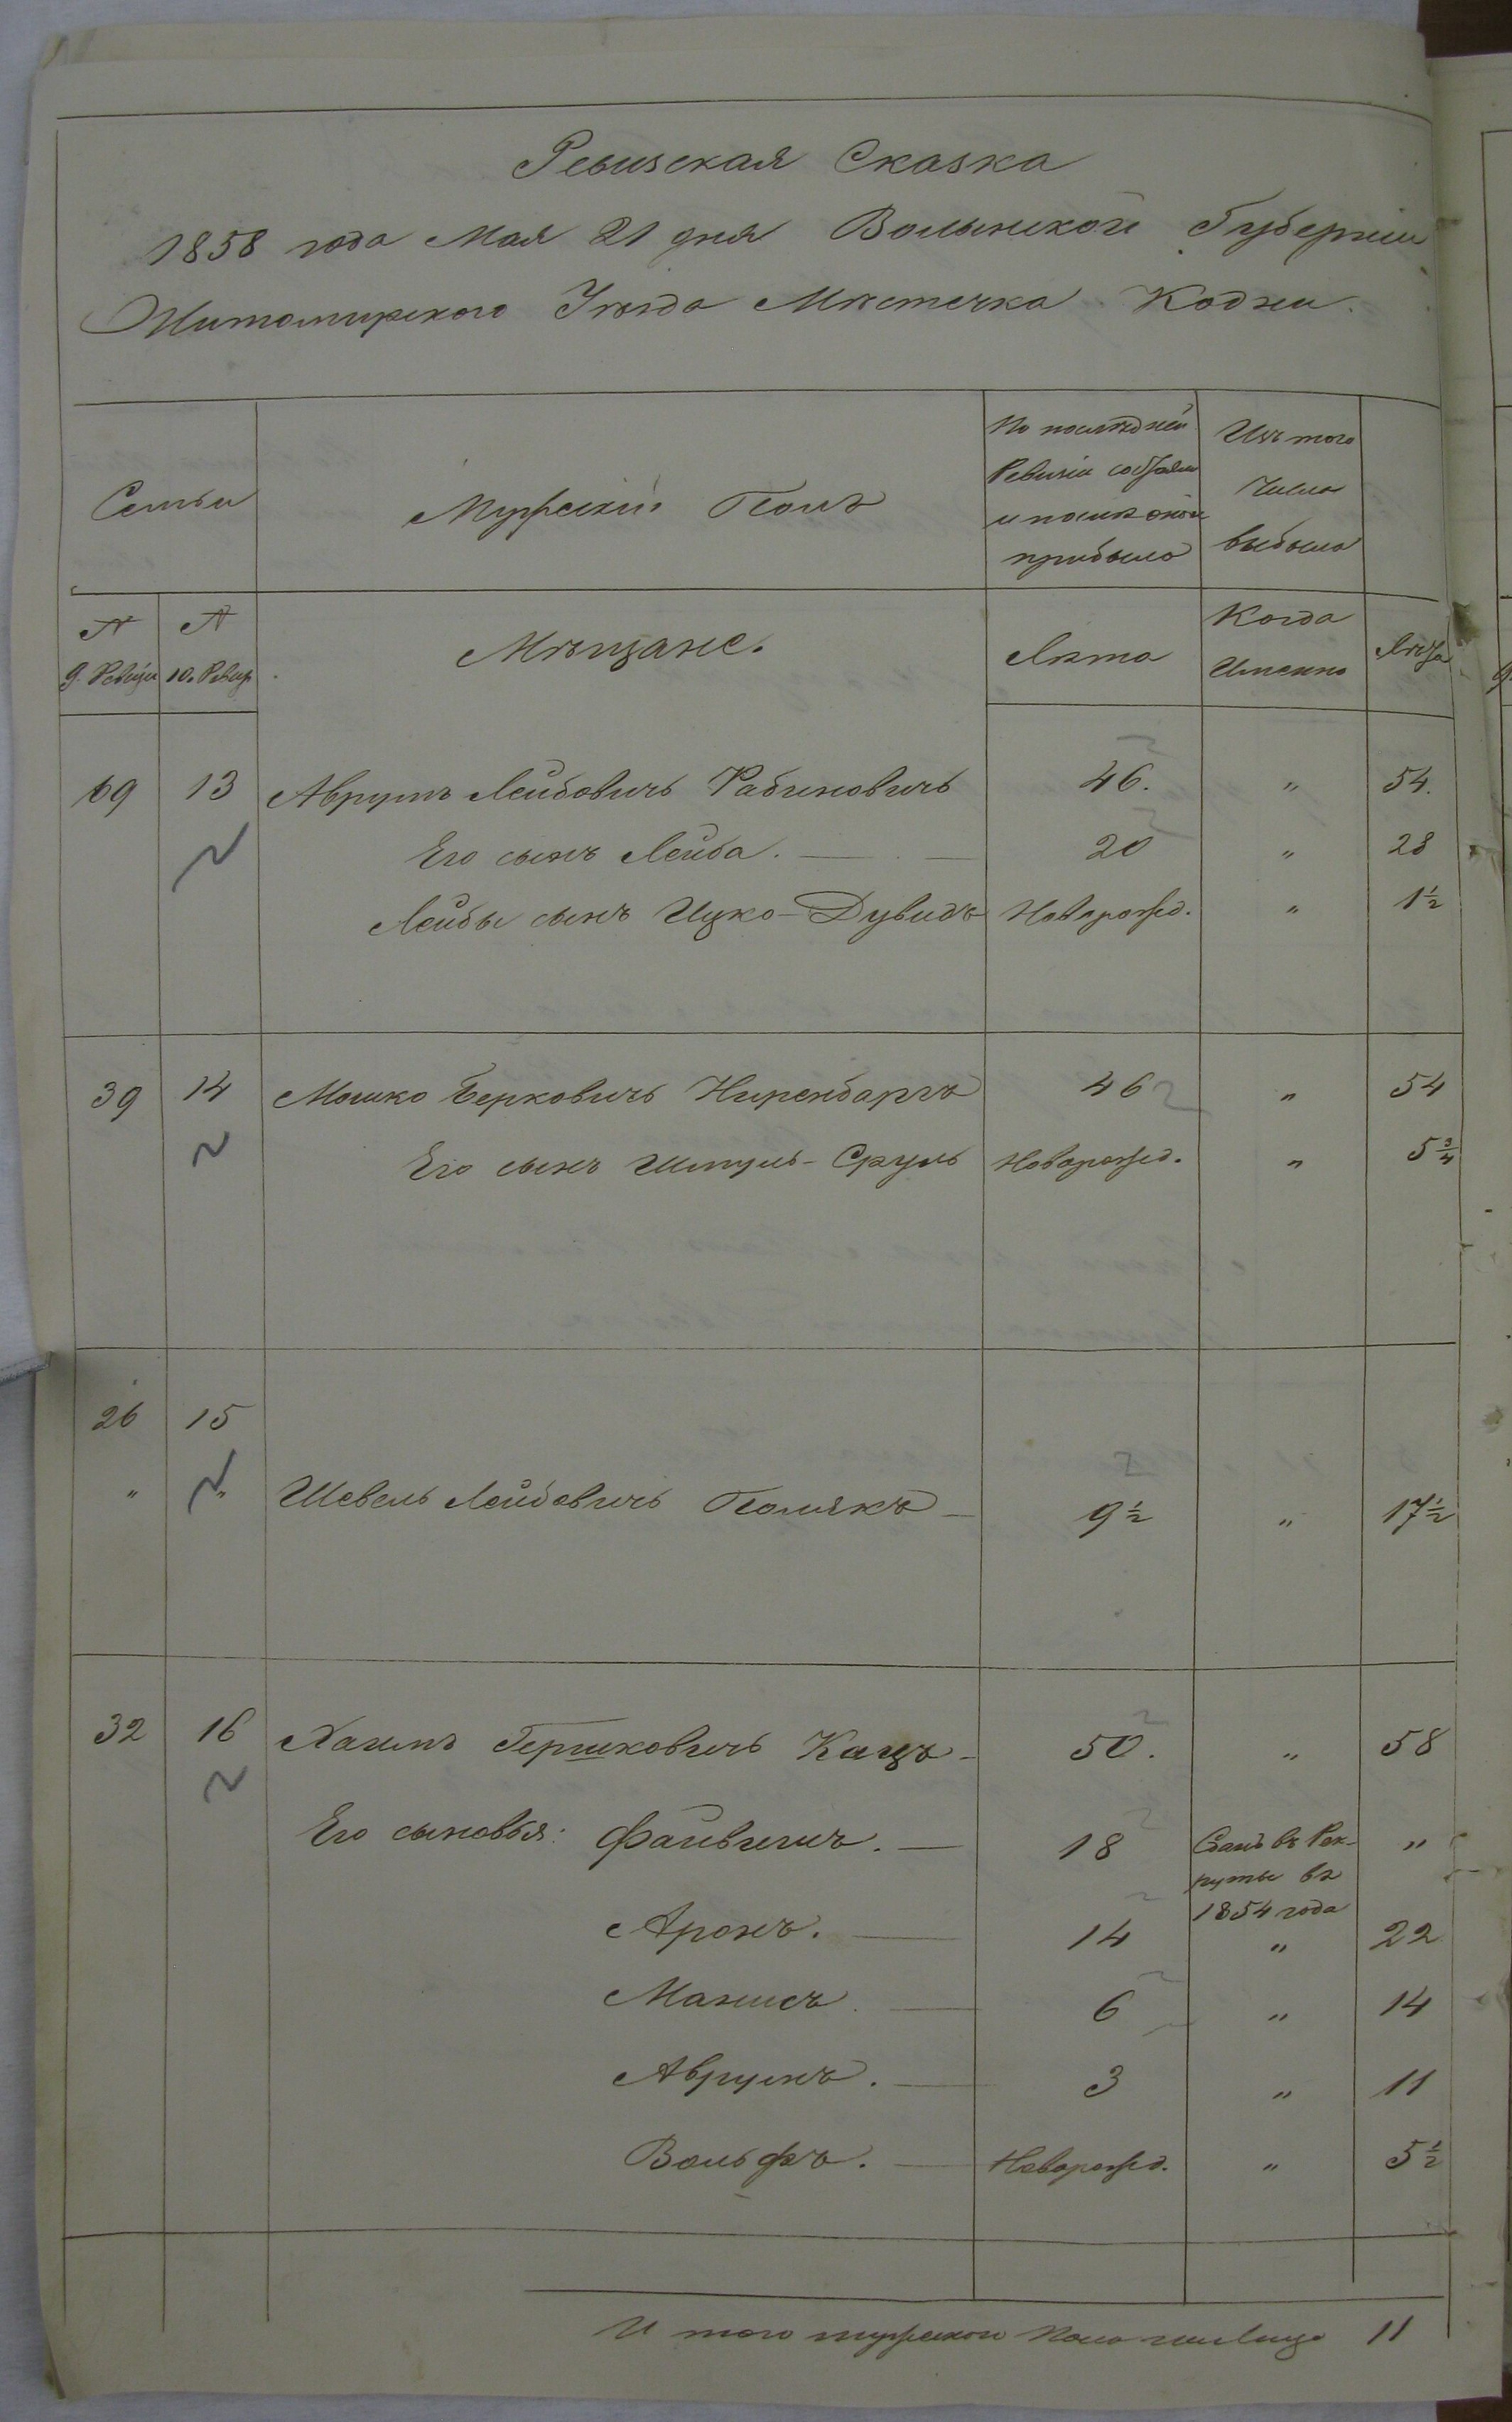 Ревизская Сказка
1858 года Мая 21 дня Волынской Губерніи
Житомирского Уѣзда Мѣстечка Кодни.
Семьи
Мужескій Полъ
По послѣдней
Ревизіи состояло
и послѣ оной
прибыло
Изъ того
числа
выбыло
№
9. Ревизіи
№
10. Ревиз.
Мѣщане.
Лѣта
Когда
Именно
Лѣта
69 13 Аврумъ Лейбовичъ Рабиновичъ 46. " 54.
Его сынъ Лейба. — — 20 " 28
Лейбы сынъ Ицко-Дувидъ Новорожд. " 1½
39 14 Мошко Берковичъ Ниренбаргъ 46 " 54
Его сынъ Шмуль-Сруль Новорожд. " 5¾
26 15
" " Шевель Лейбовичъ Полякъ — 9½ " 17½
32 16 Хаимъ Гершковичъ Кацъ - 50. " 58
Его сыновья: Файвишъ. — 18 Сданъ въ Рек-
руты въ
1854 года "
Аронъ. — 14 " 22
Манисъ. — 6 " 14
Аврумъ. — 3 " 11
Вольфъ. — Новорожд. " 5½
И того мужеского пола на лицо 11